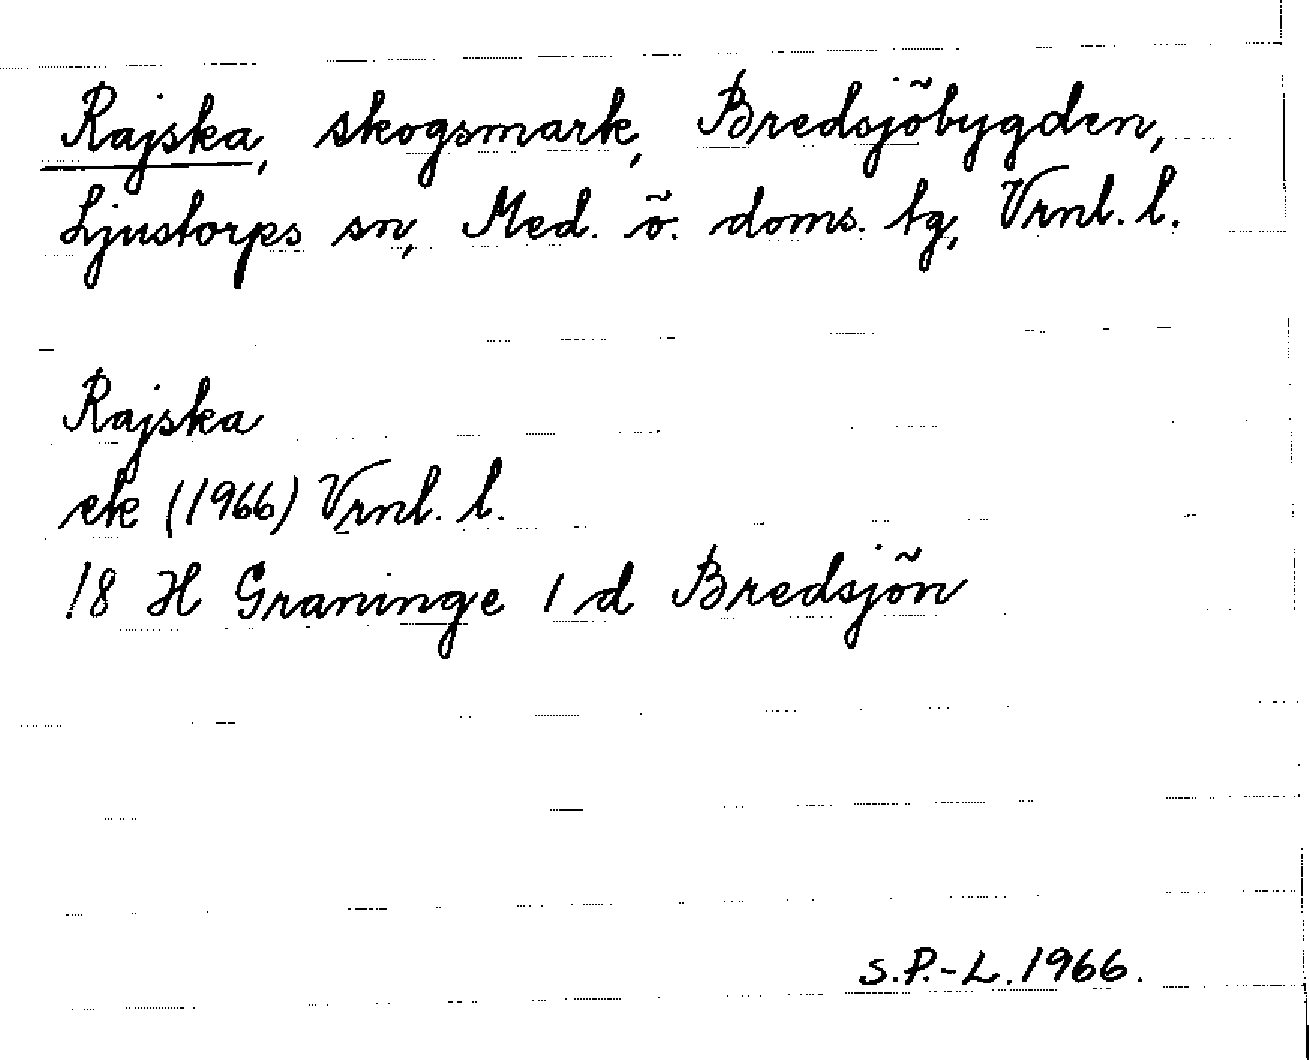 Rajska, skogsmark, Bredsjöbygden,
Ljustorps sn, Med. ö. doms. tg, Vrnl. l.
Rajska
ek (1966) Vrnl. l.
18 H Graninge 1 d Bredsjön
S.P.-L. 1966.